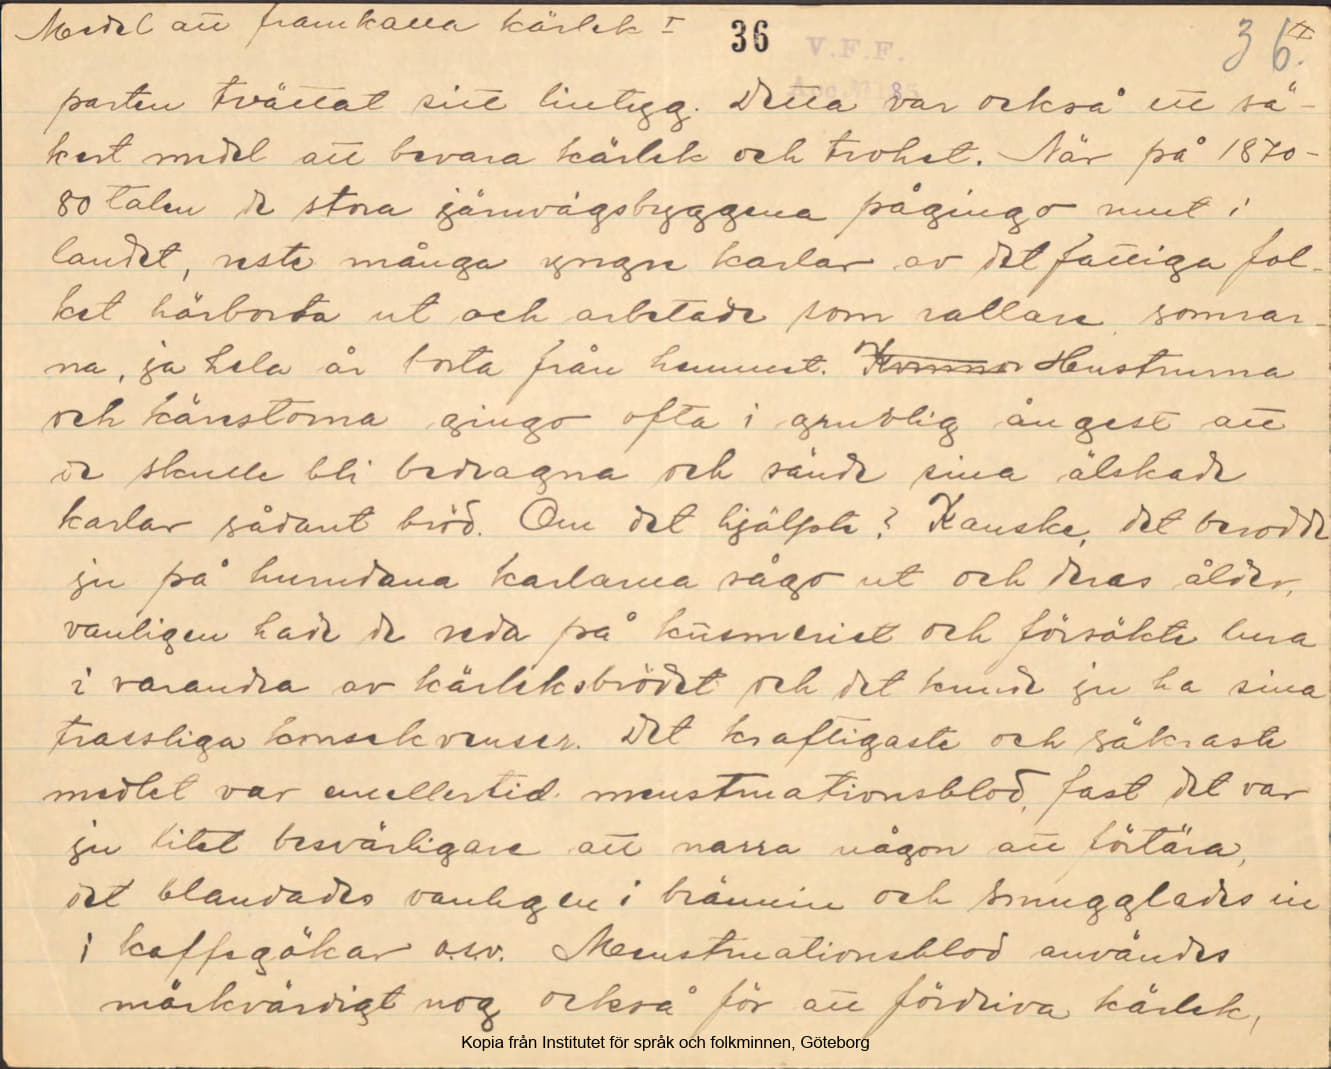 Medel att framkalla kärlek I
36
V.F.F.
36 II.
parten tvättat sitt lintygg. Detta var också ett sä-
kert medel att bevara kärlek och trohet. När på 1870-
80 talen de stora järnvägsbyggena pågingo runt i
landet, reste många yngre karlar av det fattiga fol-
ket härborta ut och arbetade som rallare somrar-
na, ja hela år borta från hemmet. Kvinnor Hustrurna
och kärestorna gingo ofta i gruvlig ångest att
de skulle bli bedragna och sände sina älskade
karlar sådant bröd. Om det hjälpte? Kanske, det berodde
ju på hurudana karlarna sågo ut och deras ålder,
vanligen hade de reda på knismeriet och försökte lura
i varandra av kärleksbrödet och det kunde ju ha sina
trassliga konsekvenser. Det kraftigaste och säkraste
medlet var emellertid menstruationsblod, fast det var
ju litet besvärligare att narra någon att förtära,
det blandades vanligen i brännvin och smugglades in
i kaffegökar o.s.v. Menstruationsblod användes
märkvärdigt nog också för att fördriva kärlek,
Kopia från Institutet för språk och folkminnen, Göteborg